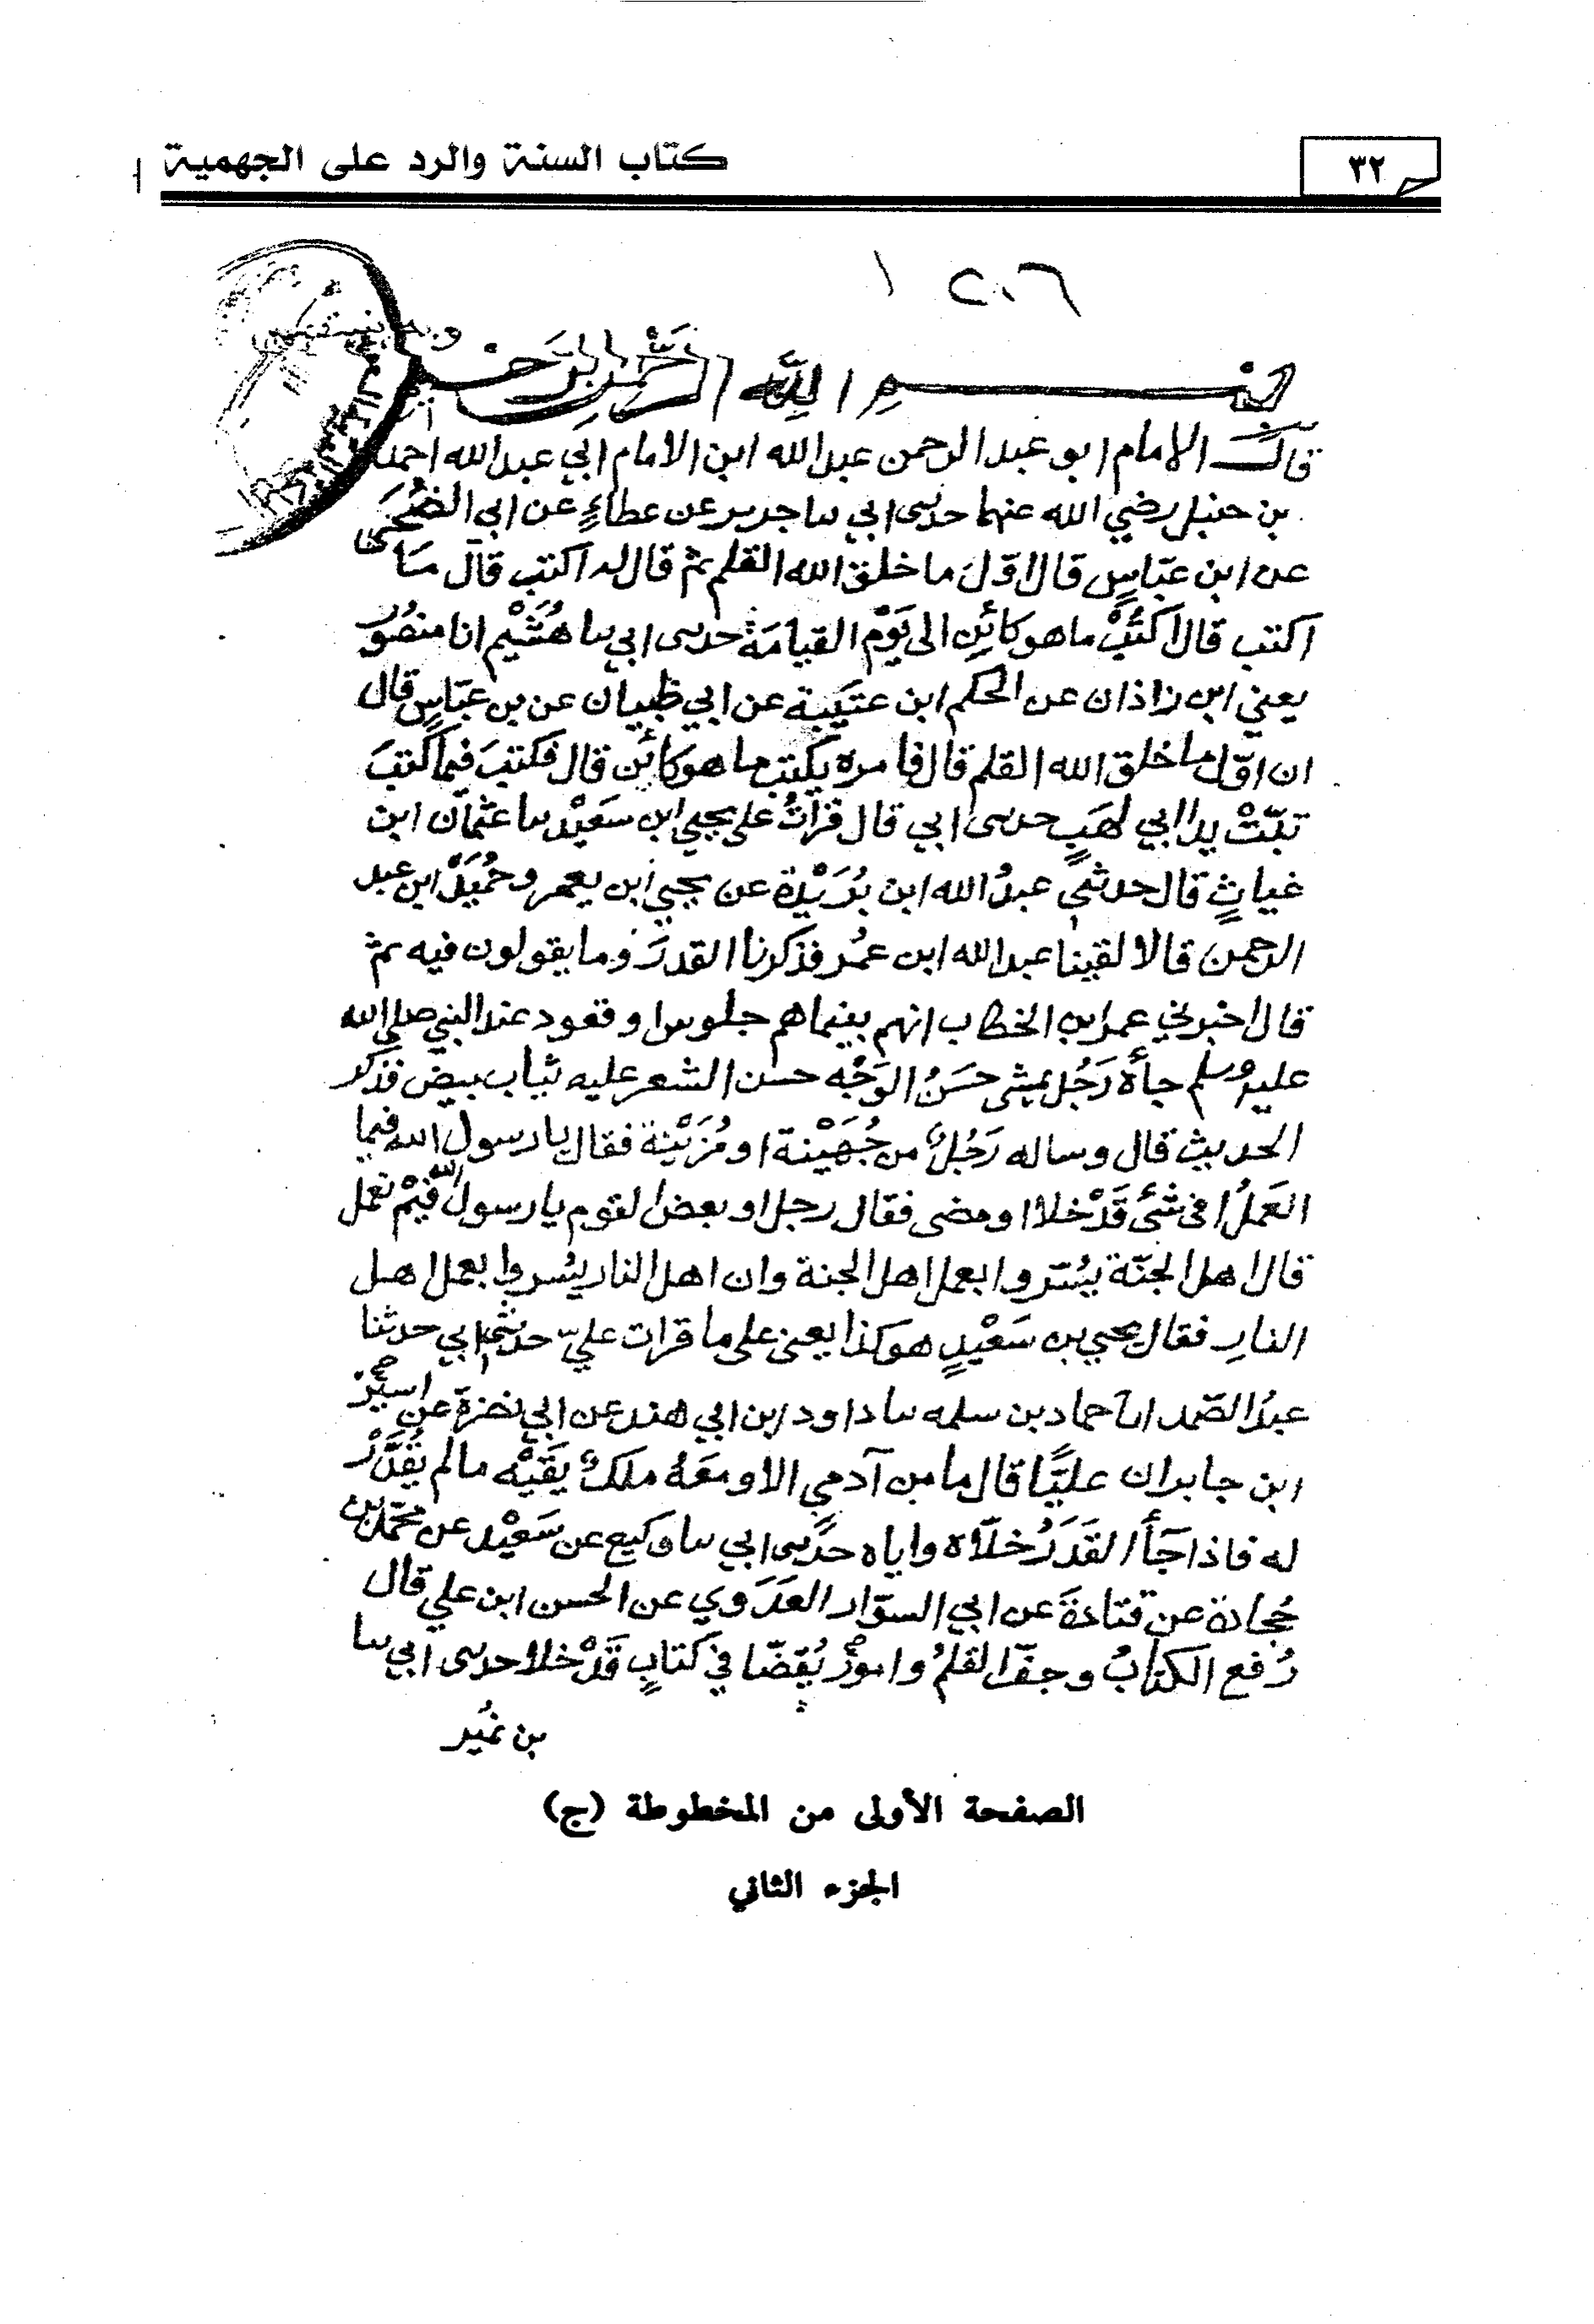 ٣٢
كتاب السنة والرد على الجهمية
١ ٢٠٦
بسم الله الرحمن الرحيم وبه نستعين
قال الامام ابو عبد الرحمن عبد الله ابن الامام ابي عبد الله احمد
بن حنبل رضي الله عنهما حدثني ابي ثنا جرير عن عطاءٍ عن ابي الضُحَى
عن ابن عبّاسٍ قال اوّل ما خلق الله القلم ثم قال له اكتب قال مَا
اكتب قال اكتُبْ ما هو كائنٍ الى يَوْم القيامَة حدثني ابي ثنا هُشَيْم انا منصُور
يعني ابن زاذان عن الحكم ابن عتَيبة عن ابي ظبيان عن بن عبّاسٍ قال
ان اوّل ما خلق الله القلم قال فامره يكتب ما هو كائن قال فكتبَ فيما كتبَ
تبّتْ يدا ابي لهَبٍ حدثني ابي قال قراتُ على يحيى ابن سَعيْد ثنا عثمان ابن
غياثٍ قال حدثني عبدُ الله ابن بُرَيْدة عن يحيى ابن يعمر وحُمَيْد ابن عبد
الرحمن قالا لقينا عبد الله ابن عمُر فذكرنا القدرَ وما يقولون فيه ثم
قال اخبرني عمر ابن الخطاب انهم بينما هم جلوس او قعود عند النبي صلى الله
عليه وسلم جأه رَجُل يمشى حسَنُ الوَجْه حسن الشعر عليه ثياب بيض فذكر
الحديث قال وساله رَجُلٌ من جُهَيْنة او مُزَيْنة فقال يا رسول الله فيما
العَملُ افى شئ قَدْ خلا او مضى فقال رجل او بعض القوم يا رسول الله فيْم نعمل
قال اهل الجنّة يُيَسّروا بعمل اهل الجنة وان اهل النار يُيسروا بعمل اهل
النارِ فقال يحيى بن سَعيْدٍ هو كذا يعنى على ما قرات عليّ حدثني ابي حدثنا
عبدُ الصّمد انا حماد بن سلمه ثنا داود ابن ابي هند عن ابي نضرة عن اسير
ابن جابر ان عليًّا قال ما من آدمي الا ومعَهُ ملكٌ يَقيْه ما لم يُقَدَّرْ
له فاذا جَأ القَدَرُ خلّاه واياه حدثني ابي ثنا وكيع عن سَعيْد عن محمد بن
جُحادة عن قتادةَ عن ابي السوّار العدَوي عن الحسن ابن علي قال
رُفع الكتابُ وجفّ القلمُ وامورٌ تُقضَا في كتابٍ قَدْ خلا حدثنى ابي ثنا
بن نمُير
الصفحة الأولى من المخطوطة (ج)
الجزء الثاني